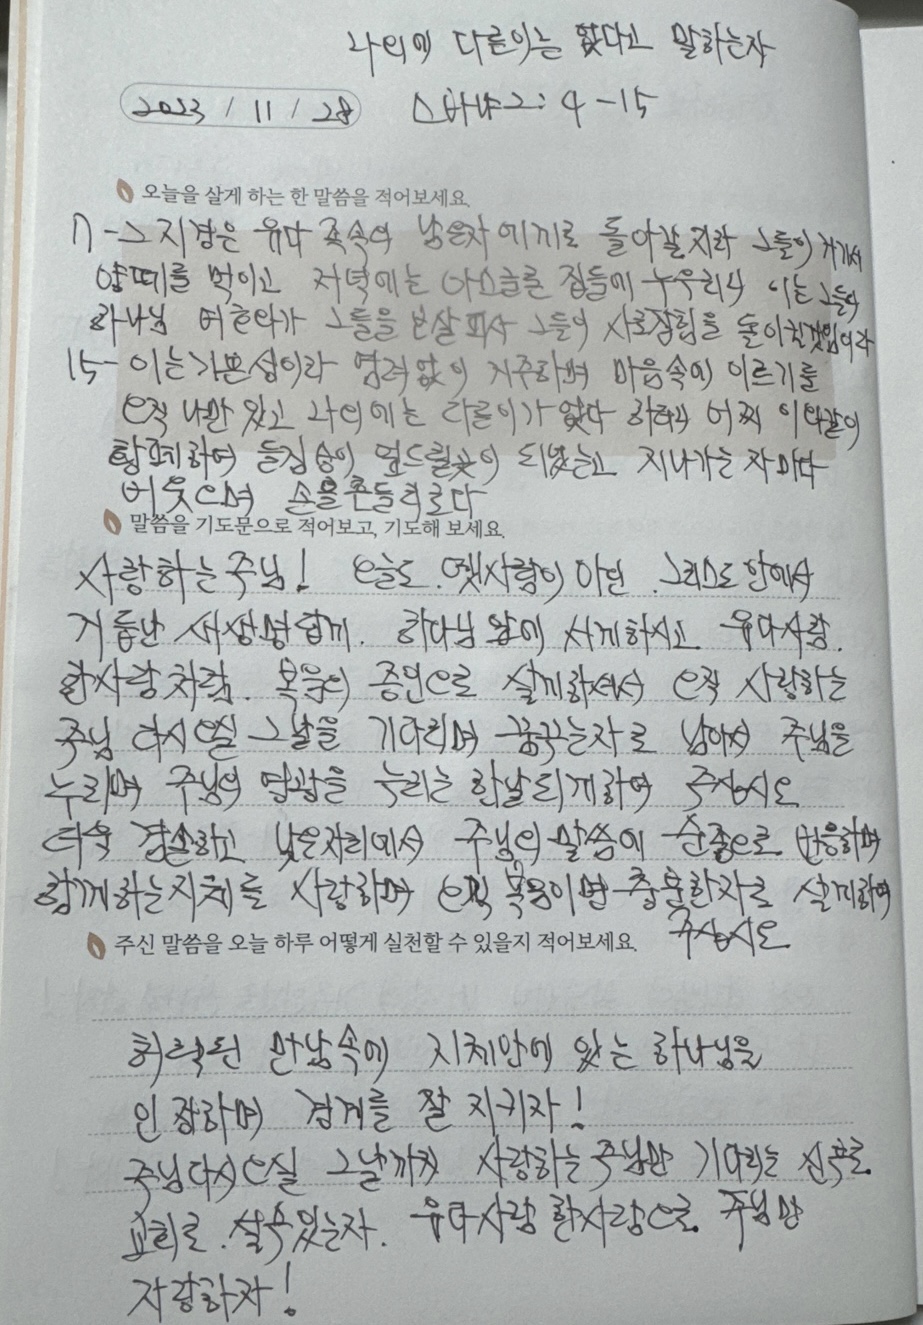 나외에 다른이는 없다고 말하는자
2023 / 11 / 28 스바냐2:4-15
오늘을 살게 하는 한 말씀을 적어보세요.
7-그 지경은 유다 족속의 남은자에게로 돌아갈지라 그들이 거기서
양떼를 먹이고 저녁에는 아스글론 집들에 누우리니 이는 그들의
하나님 여호와가 그들을 보살피사 그들의 사로잡힘을 돌이킬것임이라
15-이는 기쁜성이라 염려없이 거주하며 마음속에 이르기를
오직 나만 있고 나외에는 다른이가 없다 하더니 어찌 이와같이
황폐하여 들짐승이 엎드릴곳이 되었는고 지나가는 자마다
비웃으며 손을흔들리로다
말씀을 기도문으로 적어보고, 기도해 보세요.
사랑하는주님! 오늘도 옛사람이 아닌 그리스도 안에서
거듭난 새생명답게 하나님 앞에 서게하시고 유다사람
한사람처럼 복음의 증인으로 살게하셔서 오직 사랑하는
주님 다시오실 그날을 기다리며 꿈꾸는자로 남아서 주님을
누리며 주님의 영광을 누리는 한날되게하여 주십시오
더욱 겸손하고 낮은자리에서 주님의 말씀에 순종으로 반응하며
함께하는지체를 사랑하며 오직 복음이면 충분한자로 살게하여
주십시오
주신 말씀을 오늘 하루 어떻게 실천할 수 있을지 적어보세요.
허락된 만남속에 지체안에 있는 하나님을
인정하며 경계를 잘 지키자!
주님다시오실 그날까지 사랑하는주님만 기다리는 신부로
교회로 설수있는자. 유다사람 한사람으로 주님만
자랑하자!